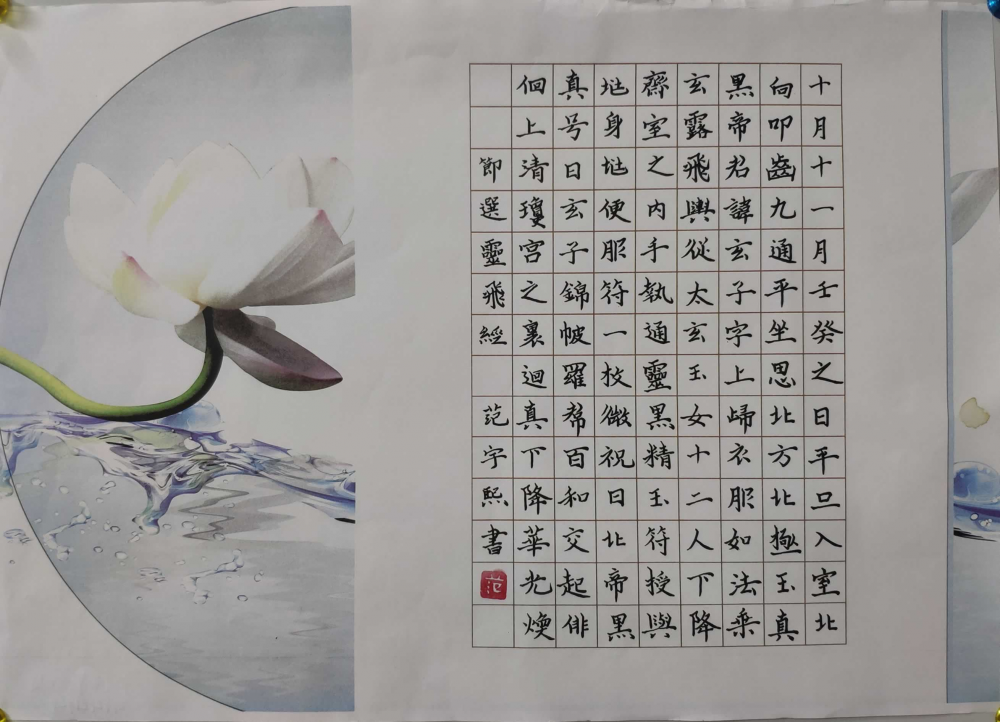 十月十一月壬癸之日平旦入室北
向叩齒九通平坐思北方北極玉真
黑帝君諱玄子字上歸衣服如法乘
玄露飛輿從太玄玉女十二人下降
齋室之內手執通靈黑精玉符授與
垯身垯便服符一枚微祝曰北帝黑
真号曰玄子錦帔羅帬百和交起俳
佪上清瓊宮之裏迴真下降華光煥
節選靈飛經 范宇熙書
范